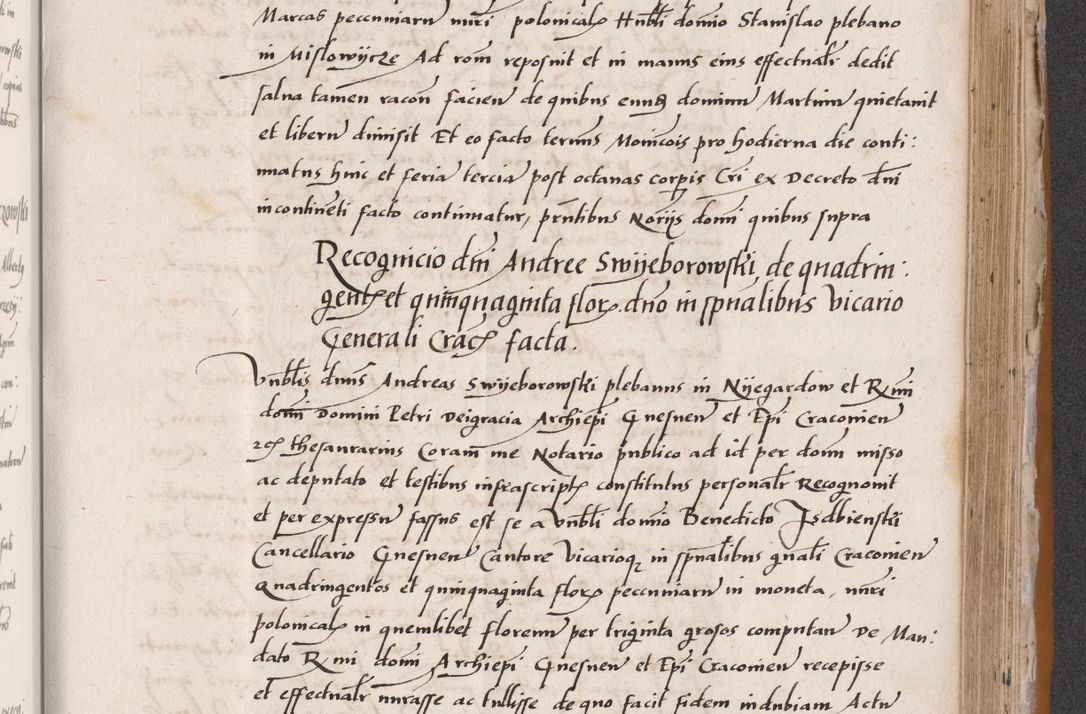 Marcas pecuniarū nūri polonicalꝫ Hnbli domio Stanislao plebano
in Mislowijcze Ad rōm reposuit et in manus eius effectualr dedit
salua tamen racōn facien de quibus eundꝫ dominū Martinū quietauit
et liberū dimisit Et eo facto terminus Monicōis pro hodierna die conti:
nuatus huic et feria tercia post octauas corpis Cri ex Decreto dni
incontineti facto continuatur, pntibus Norijs domi quibus supra
Recognicio dni Andree Swijeborowski de quadrin:
gentꝫ et quinquaginta florꝫ. dno in spualibus Vicario
Generali Cracꝫ facta.
Vnblis dnus Andreas Swijeborowski plebanus in Nijegardow et Rmi
domi Domini Petri Deigracia Archiepi Gnesnen et Epi Cracouien
zcꝫ thesaurarius Coram me Notario publico ad id per dom misso
ac deputato et testibus infrascriptꝫ constitutus personalr Recognouit
et per expressū fassus est se a Vnbli domio Benedicto Jsdbienski
Cancellario Gnesnen Cantore Vicarioqꝫ in spualibus gnali Cracouien
Quadringentos et quinquaginta florꝫ pecuniarū in moneta, nūri
polonicalꝫ in quemlibet florenū per triginta grosos computan De Man:
dato Rmi domi Archiepi Gnesnen et Epi Cracouien recepisse
et effectualr leuasse ac tullisse de quo facit fidem indubiam Actu